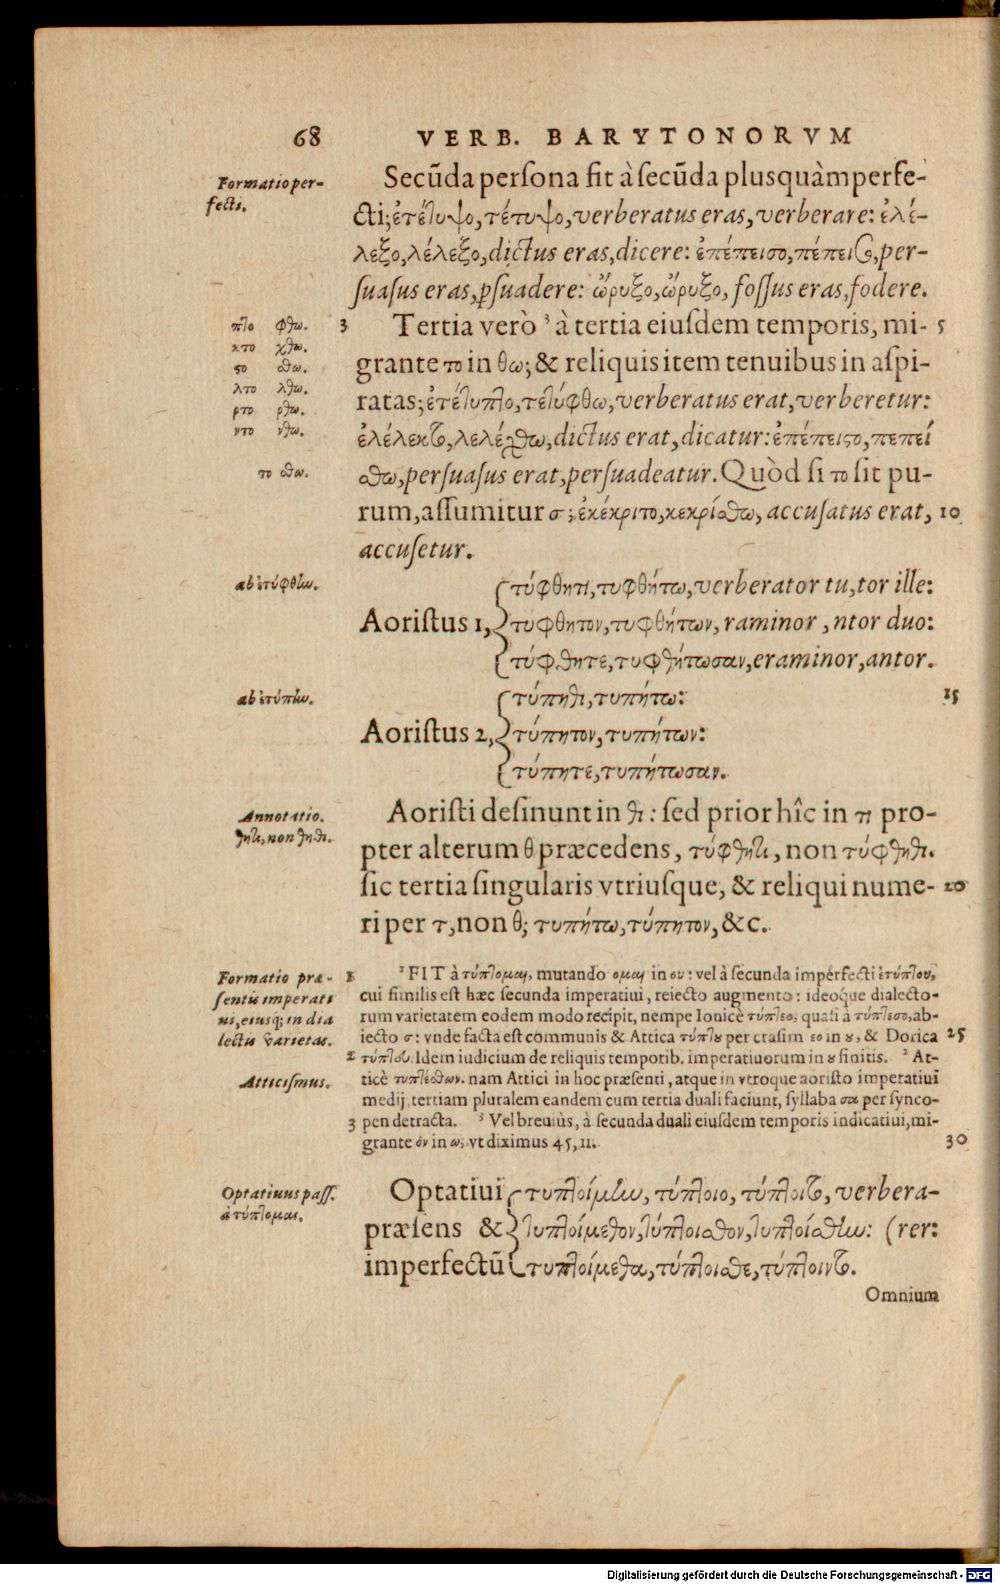 68 VERB. BARYTONORVM
Formatio per-
fecti.
Secũda persona fit à secũda plusquàmperfe-
cti; ἐτέτυψο, τέτυψο, verberatus eras, verberare: ἐλέ-
λεξο, λέλεξο, dictus eras, dicere: ἐπέπεισο, πέπεισο, per-
suasus eras, ꝑsuadere: ὤρυξο, ὤρυξο, fossus eras, fodere.
πτο φθω.
κτο χθω.
στο σθω.
λτο λθω.
ρτο ρθω.
ντο νθω.
το σθω.
3 Tertia verò ³ à tertia eiusdem temporis, mi- 5
grante το in θω; & reliquis item tenuibus in aspi-
ratas; ἐτέτυπτο, τετύφθω, verberatus erat, verberetur:
ἐλέλεκτο, λελέχθω, dictus erat, dicatur: ἐπέπειστο, πεπεί
σθω, persuasus erat, persuadeatur. Quòd si το sit pu-
rum, assumitur σ; ἐκέκριτο, κεκρίσθω, accusatus erat, 10
accusetur.
ab ἐτύφθην.
τύφθητι, τυφθήτω, verberator tu, tor ille:
Aoristus 1, τυφθητον, τυφθήτων, raminor, ntor duo:
τύφθητε, τυφθήτωσαν, eraminor, antor.
ab ἐτύπην.
τύπηθι, τυπήτω: 15
Aoristus 2, τύπητον, τυπήτων:
τύπητε, τυπήτωσαν.
Annotatio.
θητι, non θηθι.
Aoristi desinunt in θι: sed prior hîc in τι pro-
pter alterum θ præcedens, τύφθητι, non τύφθηθι.
sic tertia singularis vtriusque, & reliqui nume- 20
ri per τ, non θ; τυπήτω, τύπητον, &c.
Formatio præ-
sentis imperati
ui, eiusq; in dia
lectis varietas.
Atticismus.
1 ¹FIT à τύπτομαι, mutando ομαι in ου: vel à secunda imperfecti ἐτύπτου,
cui similis est hæc secunda imperatiui, reiecto augmento: ideoque dialecto-
rum varietatem eodem modo recipit, nempe Ionicè τύπτεο, quasi à τύπτεσο, ab-
iecto σ: vnde facta est communis & Attica τύπτȣ per crasim εο in ȣ, & Dorica 25
2 τύπτευ. Idem iudicium de reliquis temporib. imperatiuorum in ȣ finitis. ² At-
ticè τυπτέσθων. nam Attici in hoc præsenti, atque in vtroque aoristo imperatiui
medij, tertiam pluralem eandem cum tertia duali faciunt, syllaba σα per synco-
3 pen detracta. ³ Vel breuiùs, à secunda duali eiusdem temporis indicatiui, mi-
grante ον in ω; vt diximus 45, 11. 30
Optatiuus pass.
à τύπτομαι.
Optatiui τυπτοίμην, τύπτοιο, τύπτοιτο, verbera-
præsens & τυπτοίμεθον, τύπτοισθον, τυπτοίσθην: (rer:
imperfectũ τυπτοίμεθα, τύπτοισθε, τύπτοιντο.
Omnium
Digitalisierung gefördert durch die Deutsche Forschungsgemeinschaft - DFG